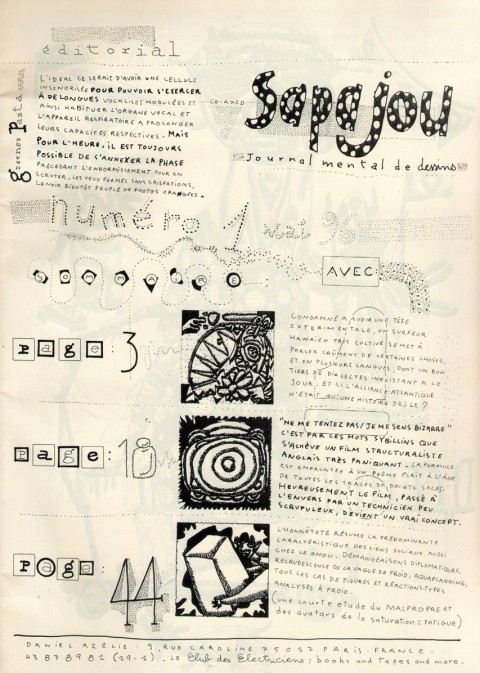 éditorial
greener Pasta
L'IDEAL CE SERAIT D'AVOIR UNE CELLULE
INSONORISÉE POUR POUVOIR S'EXERCER
À DE LONGUES VOCALISES MODULÉES ET
AINSI HABITUER L'ORGANE VOCAL ET
L'APPAREIL RESPIRATOIRE A PROLONGER
LEURS CAPACITÉS RESPECTIVES. MAIS
POUR L'HEURE, IL EST TOUJOURS
POSSIBLE DE S'ANNEXER LA PHASE
PRÉCÉDANT L'ENDORMISSEMENT POUR EN
SCRUTER, LES YEUX FERMÉS SANS CRISPATIONS,
LE NOIR BIENTÔT PEUPLÉ DE PHOTOS ORANGÉES.
CO-AXED
Sapajou
Journal mental de dessins
numéro 1 mai 90
SOMMAIRE:
AVEC:
page: 3
CONDAMNÉ A AVOIR UNE TÊTE
EXPERIMENTALE, UN SURFEUR
HAWAIEN TRÈS CULTIVÉ SE MET À
PARLER CRÛMENT DE CERTAINES CHOSES,
ET EN PLUSIEURS LANGUES, DONT UN BON
TIERS DE DIALECTES INEXISTANT A CE
JOUR. ET SI L'ALLIANCE ATLANTIQUE
N'ÉTAIT QU'UNE HISTOIRE DRÔLE?
page: 18
"NE ME TENTEZ PAS/JE ME SENS BIZARRE"
C'EST PAR CES MOTS SYBILLINS QUE
S'ACHÈVE UN FILM STRUCTURALISTE
ANGLAIS TRÈS PANIQUANT. LA FORMULE
EST EMPRUNTÉE À UN POÈME ÉCRIT À L'ÂGE
DE TOUTES LES TRACES DE DOIGTS SALES.
HEUREUSEMENT LE FILM, PASSÉ À
L'ENVERS PAR UN TECHNICIEN PEU
SCRUPULEUX, DEVIENT UN VRAI CONCEPT.
page: 44
L'HONNÊTETÉ RÉSUME LA PRÉDOMINANTE
CARACTÉRISTIQUE DES LIENS SOCIAUX AUSSI
CHEZ LE GNOU. DÉMANGEAISONS DIPLOMATIQUES,
RECRUDESCENCE DE LA VAGUE DE FROID, AQUAPLANNING,
TOUS LES CAS DE FIGURES ET RÉACTIONS-TYPES
ANALYSÉS À FROID.
(une courte étude du MALPROPRE et
des avatars de la saturation=FATIGUE)
DANIEL AZÉLIE: 9, RUE CAROLINE 75017. PARIS. FRANCE.
43 87 89 81 (19-1). Le Club des Electriciens: books and tapes and more.